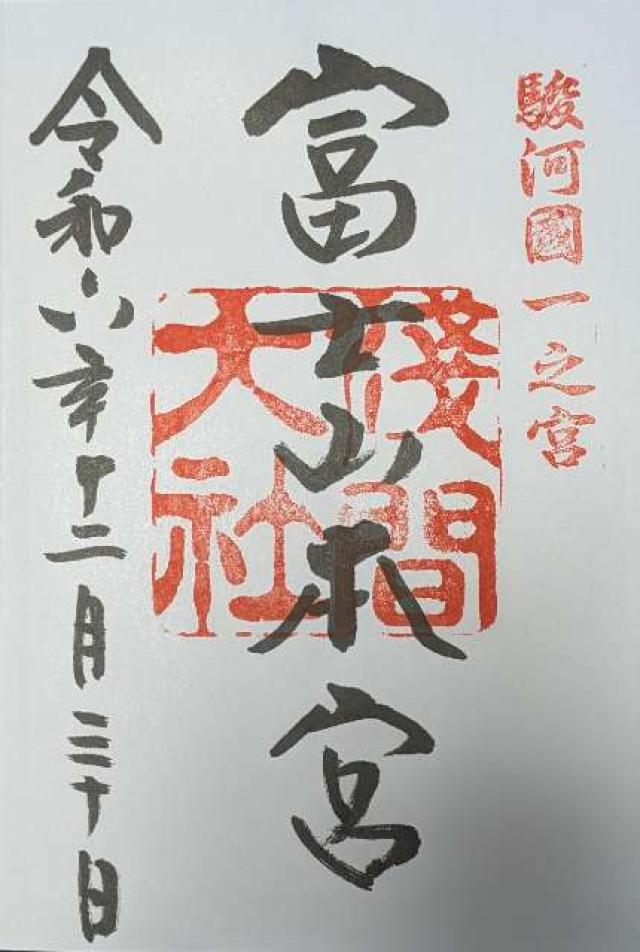 駿河國一之宮
富士山本宮
淺間大社
令和六年十二月三十日